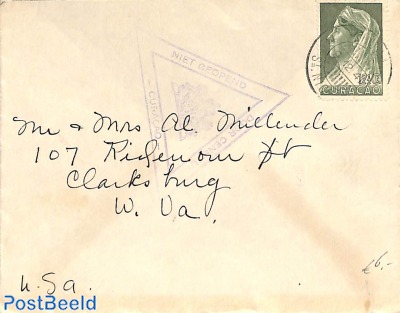 NIET GEOPEND
DOOR CENSOR
CURAÇAO
CURAÇAO
Mr & Mrs Al. Millender
107 Ridenour St
Clarksburg
W. Va.
U.S.a.
€6,-
PostBeeld